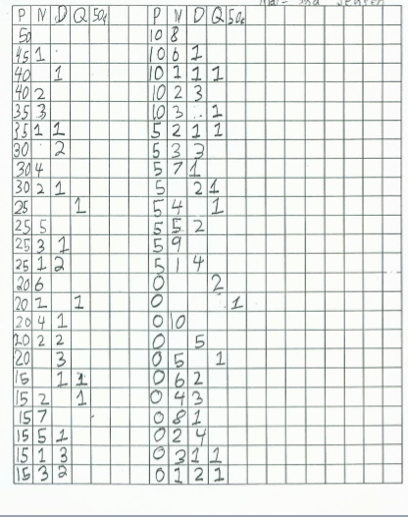 P N D Q 50¢ P N D Q 50¢
50 10 8
45 1 10 6 1
40 1 10 1 1 1
40 2 10 2 3
35 3 10 3 1
35 1 1 5 2 1 1
30 2 5 3 3
30 4 5 7 1
30 2 1 5 2 1
25 1 5 4 1
25 5 5 5 2
25 3 1 5 9
25 1 2 5 1 4
20 6 0 2
20 1 1 0 1
20 4 1 0 10
20 2 2 0 5
20 3 0 5 1
15 1 1 0 6 2
15 2 1 0 4 3
15 7 0 8 1
15 5 1 0 2 4
15 1 3 0 3 1 1
15 3 2 0 1 2 1